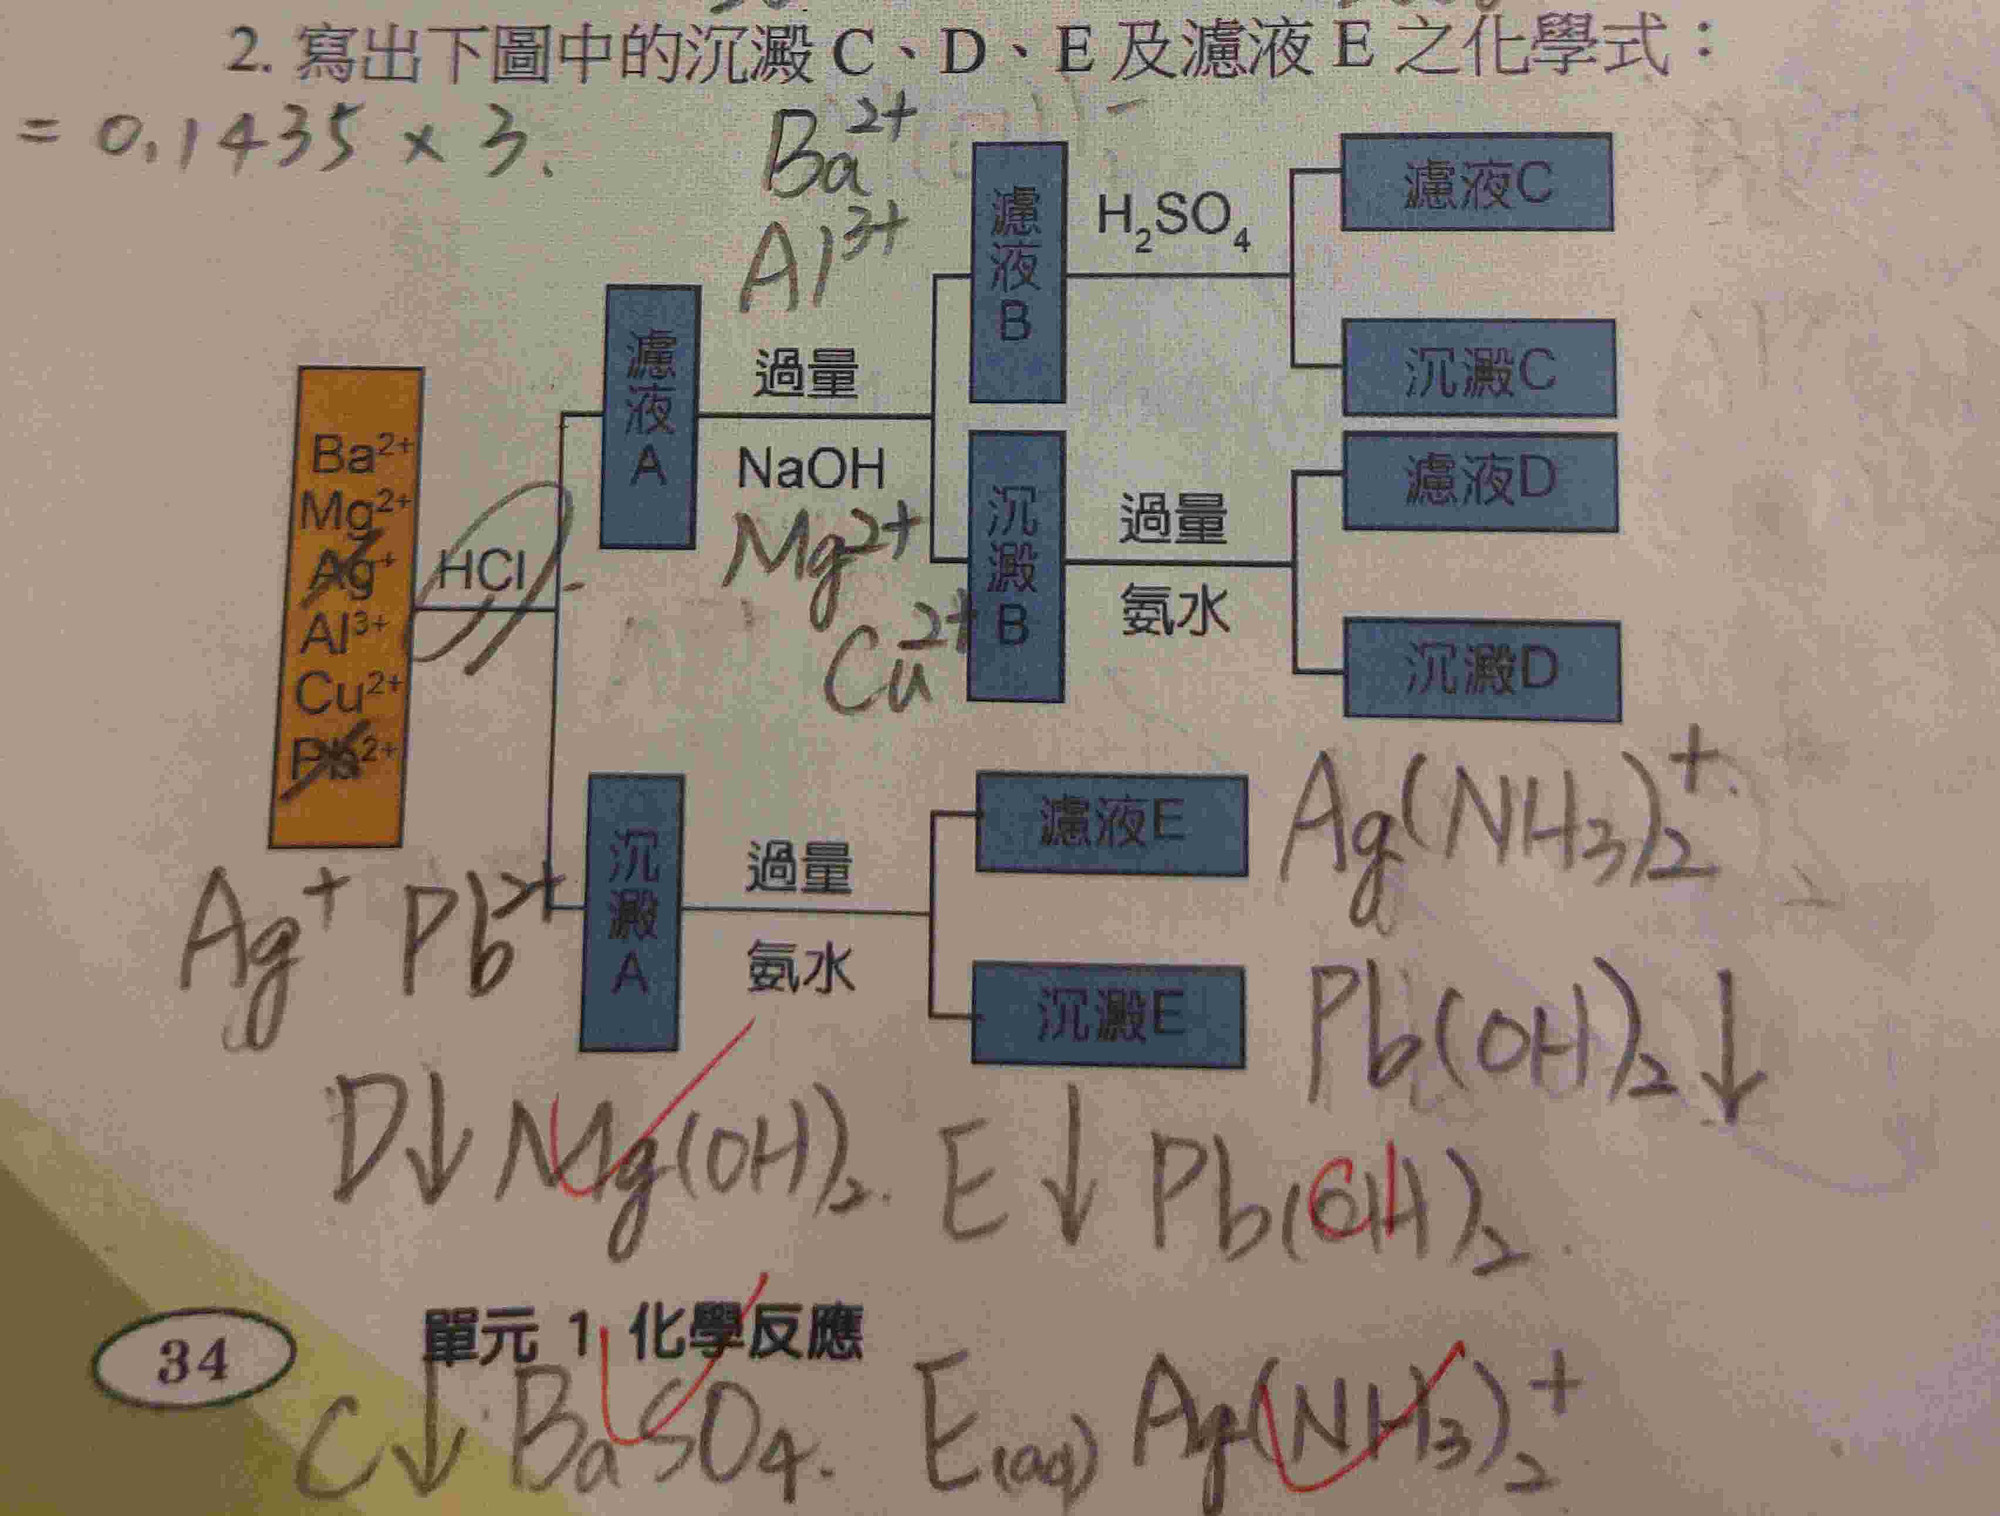 2. 寫出下圖中的沉澱 C、D、E 及濾液 E 之化學式：
= 0.1435 × 3.
Ba²⁺
Al³⁺
濾液B
H₂SO₄
濾液C
沉澱C
濾液A
過量
NaOH
Ba²⁺
Mg²⁺
Ag⁺
Al³⁺
Cu²⁺
Pb²⁺
HCl
Mg²⁺
Cu²⁺
沉澱B
過量
氨水
濾液D
沉澱D
Ag⁺ Pb²⁺
沉澱A
過量
氨水
濾液E
Ag(NH₃)₂⁺
沉澱E
Pb(OH)₂↓
D↓ Mg(OH)₂. E↓ Pb(OH)₂.
Cl
34 單元 1 化學反應
C↓ BaSO₄. E(aq) Ag(NH₃)₂⁺